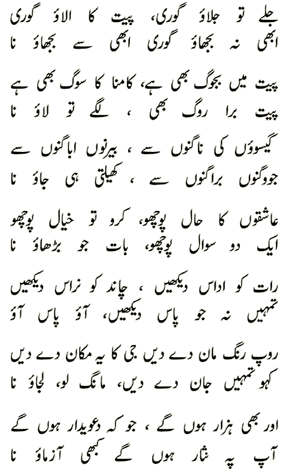 جلے تو جلاؤ گوری، پیت کا الاؤ گوری
ابھی نہ بجھاؤ گوری ابھی سے بجھاؤ نا
پیت میں بجوگ بھی ہے، کامنا کا سوگ بھی ہے
پیت برا روگ بھی ، لگے تو لاؤ نا
گیسوؤں کی ناگنوں سے ، بیرنوں اباگنوں سے
جووگنوں براگنوں سے ، کھیلتی ہی جاؤ نا
عاشقوں کا حال پوچھو، کرو تو خیال پوچھو
ایک دو سوال پوچھو، بات جو بڑھاؤ نا
رات کو اداس دیکھیں ، چاند کو نراس دیکھیں
تمہیں نہ جو پاس دیکھیں، آؤ پاس آؤ
روپ رنگ مان دے دیں جی کا یہ مکان دے دیں
کہو تمہیں جان دے دیں، مانگ لو، لجاؤ نا
اور بھی ہزار ہوں گے ، جو کہ دعویدار ہوں گے
آپ پہ نثار ہوں گے کبھی آزماؤ نا